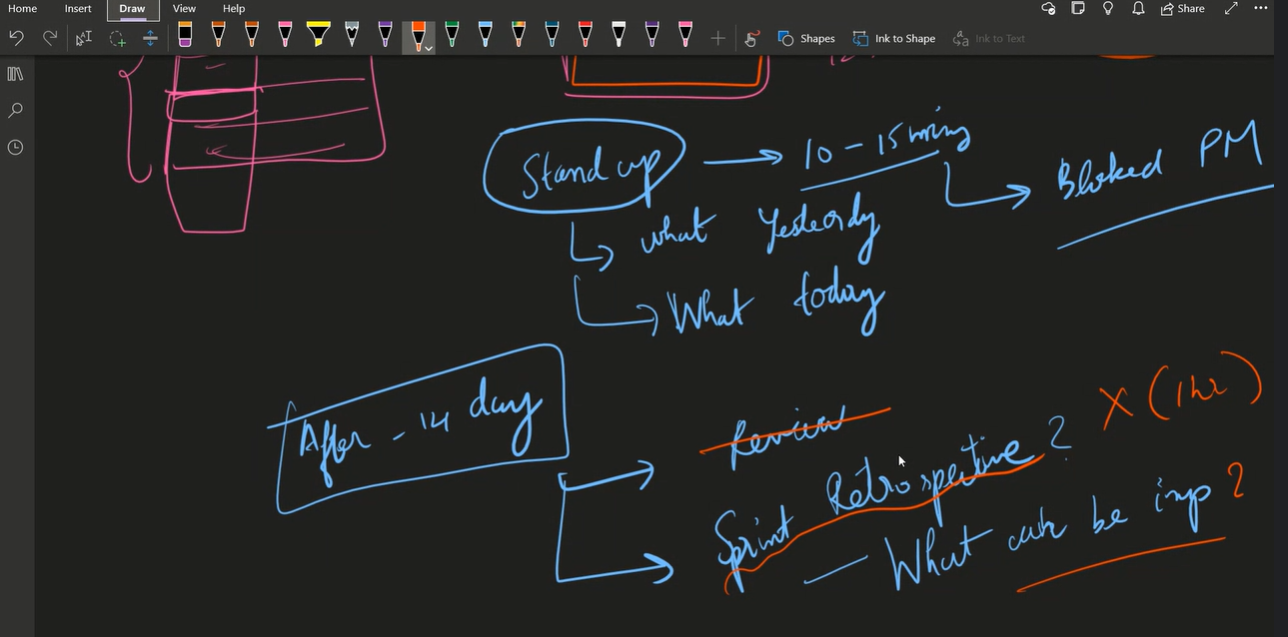 Home Insert Draw View Help Share
Shapes Ink to Shape Ink to Text
Stand up → 10 - 15 mins
Blocked PM
what Yesterday
What today
After - 14 day
Review
Sprint Retrospective ? X (1hr)
— What can be imp ?